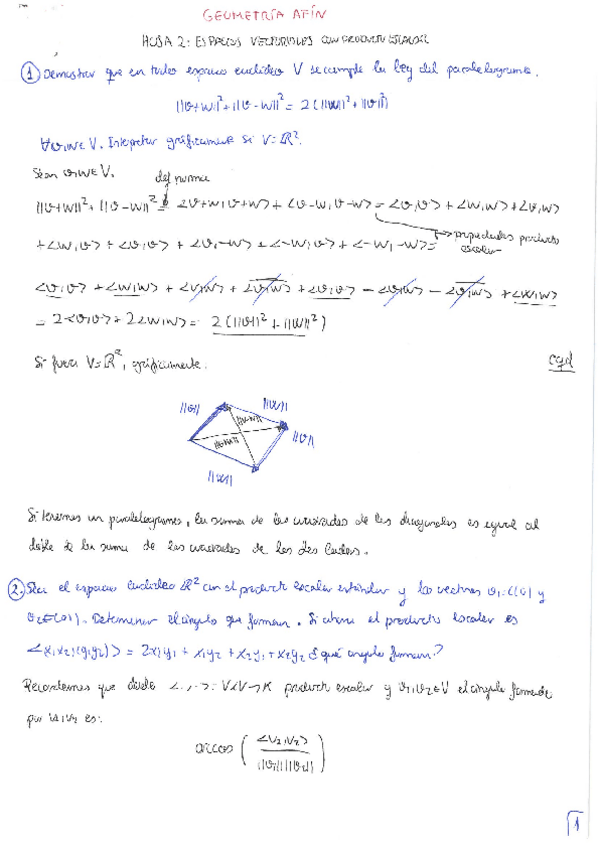 GEOMETRÍA AFÍN
HOJA 2: ESPACIOS VECTORIALES CON PRODUCTO ESCALAR
① Demostrar que en todo espacio euclídeo V se cumple la ley del paralelogramo.
||v+w||² + ||v-w||² = 2(||w||² + ||v||²)
∀v,w∈V. Interpretar gráficamente si V=ℝ².
Sean v,w∈V.
def norma
||v+w||² + ||v-w||² = <v+w,v+w> + <v-w,v-w> = <v,v> + <w,w> + <v,w>
propiedades producto escalar
+<w,v> + <v,v> + <v,-w> + <-w,v> + <-w,-w> =
<v,v> + <w,w> + <v,w> + <v,w> + <v,v> - <v,w> - <v,w> + <w,w>
= 2<v,v> + 2<w,w> = 2(||v||² + ||w||²)
Si fuera V=ℝ², gráficamente:
cqd
||v|| ||w||
||v-w||
||v+w|| ||v||
||w||
Si tenemos un paralelogramo, la suma de los cuadrados de las diagonales es igual al
doble de la suma de los cuadrados de los dos lados.
② Sea el espacio euclídeo ℝ² con el producto escalar estándar y los vectores v₁=(1,0) y
v₂=(0,1). Determinar el ángulo que forman. Si ahora el producto escalar es
<(x₁,x₂),(y₁,y₂)> = 2x₁y₁ + x₁y₂ + x₂y₁ + x₂y₂ ¿qué ángulo forman?
Recordemos que dado <.,.>: V×V→K producto escalar y v₁,v₂∈V el ángulo formado
por v₁,v₂ es:
arccos ( <v₁,v₂> / ||v₁|| ||v₂|| )
1